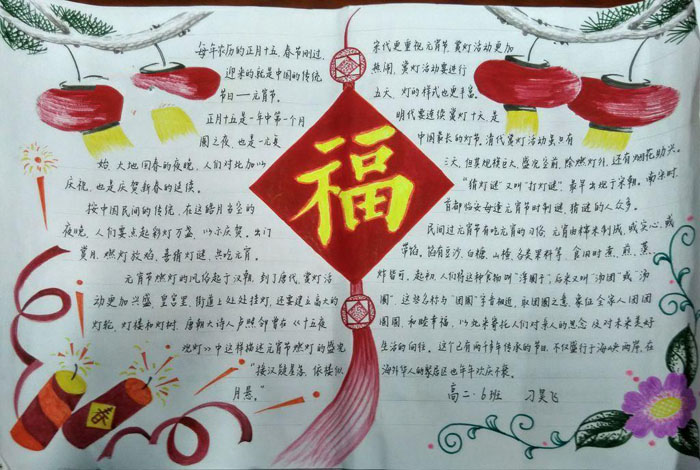 每年农历的正月十五,春节刚过,
迎来的就是中国的传统
节日——元宵节。
正月十五是一年中第一个月
圆之夜,也是一元复
始,大地回春的夜晚,人们对此加以
庆祝,也是庆贺新春的延续。
按中国民间的传统,在这皓月高悬的
夜晚,人们要点起彩灯万盏,以示庆贺。出门
赏月、燃灯放焰、喜猜灯谜、共吃元宵
元宵节燃灯的风俗起于汉朝,到了唐代,赏灯活
动更加兴盛,皇宫里、街道上处处挂灯,还要建立高大的
灯轮、灯楼和灯树,唐朝大诗人卢照邻曾在《十五夜
观灯》中这样描述元宵节燃灯的盛况
“接汉疑星落,依楼似
月悬。”
福
春
宋代更重视元宵节,赏灯活动更加
热闹,赏灯活动要进行
五天,灯的样式也更丰富。
明代要连续赏灯十天,是
中国最长的灯节,清代赏灯活动虽只有
三天,但其规模巨大,盛况空前,除燃灯外,还有烟花助兴。
“猜灯谜”又叫“打灯谜”最早出现于宋朝。南宋时,
首都临安每逢元宵节时制谜,猜谜的人众多。
民间过元宵节有吃元宵的习俗,元宵由糯米制成,或实心,或
带馅。馅有豆沙、白糖、山楂、各类果料等,食用时煮、煎、蒸
炸皆可。起初,人们将这种食物叫“浮圆子”,后来又叫“汤团”或“汤
圆”,这些名称与“团圆”字音相近,取团圆之意,象征全家人团团
圆圆,和睦幸福,以此来寄托人们对亲人的思念及对未来美好
生活的向往。这个已有两千多年传承的节日,不仅盛行于海峡两岸,在
海外华人的聚居区也年年欢庆不衰。
高二·6班 刁昊飞